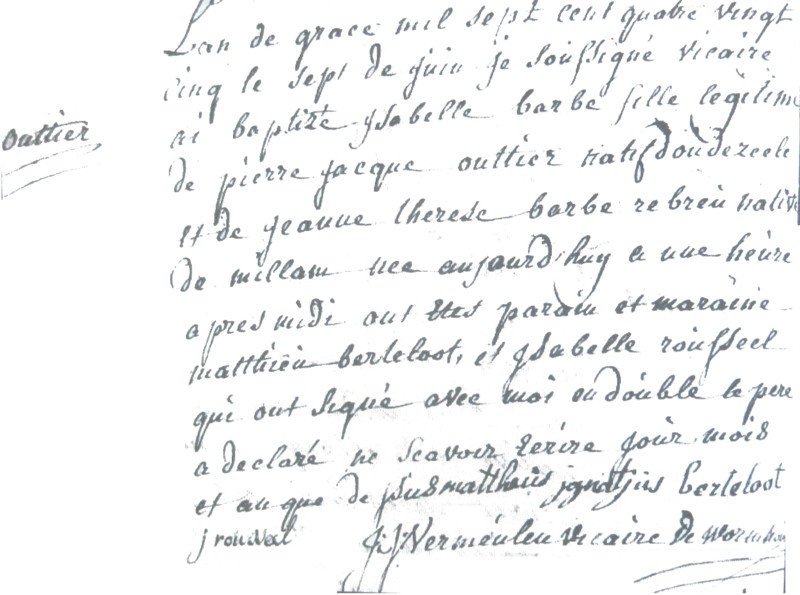 Lan de grace mil sept cent quatre vingt
cinq le sept de juin je soussigné vicaire
outtier
ai baptizé ysabelle barbe fille legitime
de pierre jacque outtier natif doudezeele
et de jeanne therese barbe rebreu native
de millam nee aujourd'huy a une heure
apres midi ont etes parain et maraine
matthieu berteloot, et ysabelle roussel
qui ont signé avec moi en double le pere
a declaré ne scavoir ecrire jour mois
et an que dessus mattheus ignatius berteloot
j rousel J J Vermeulen vicaire De